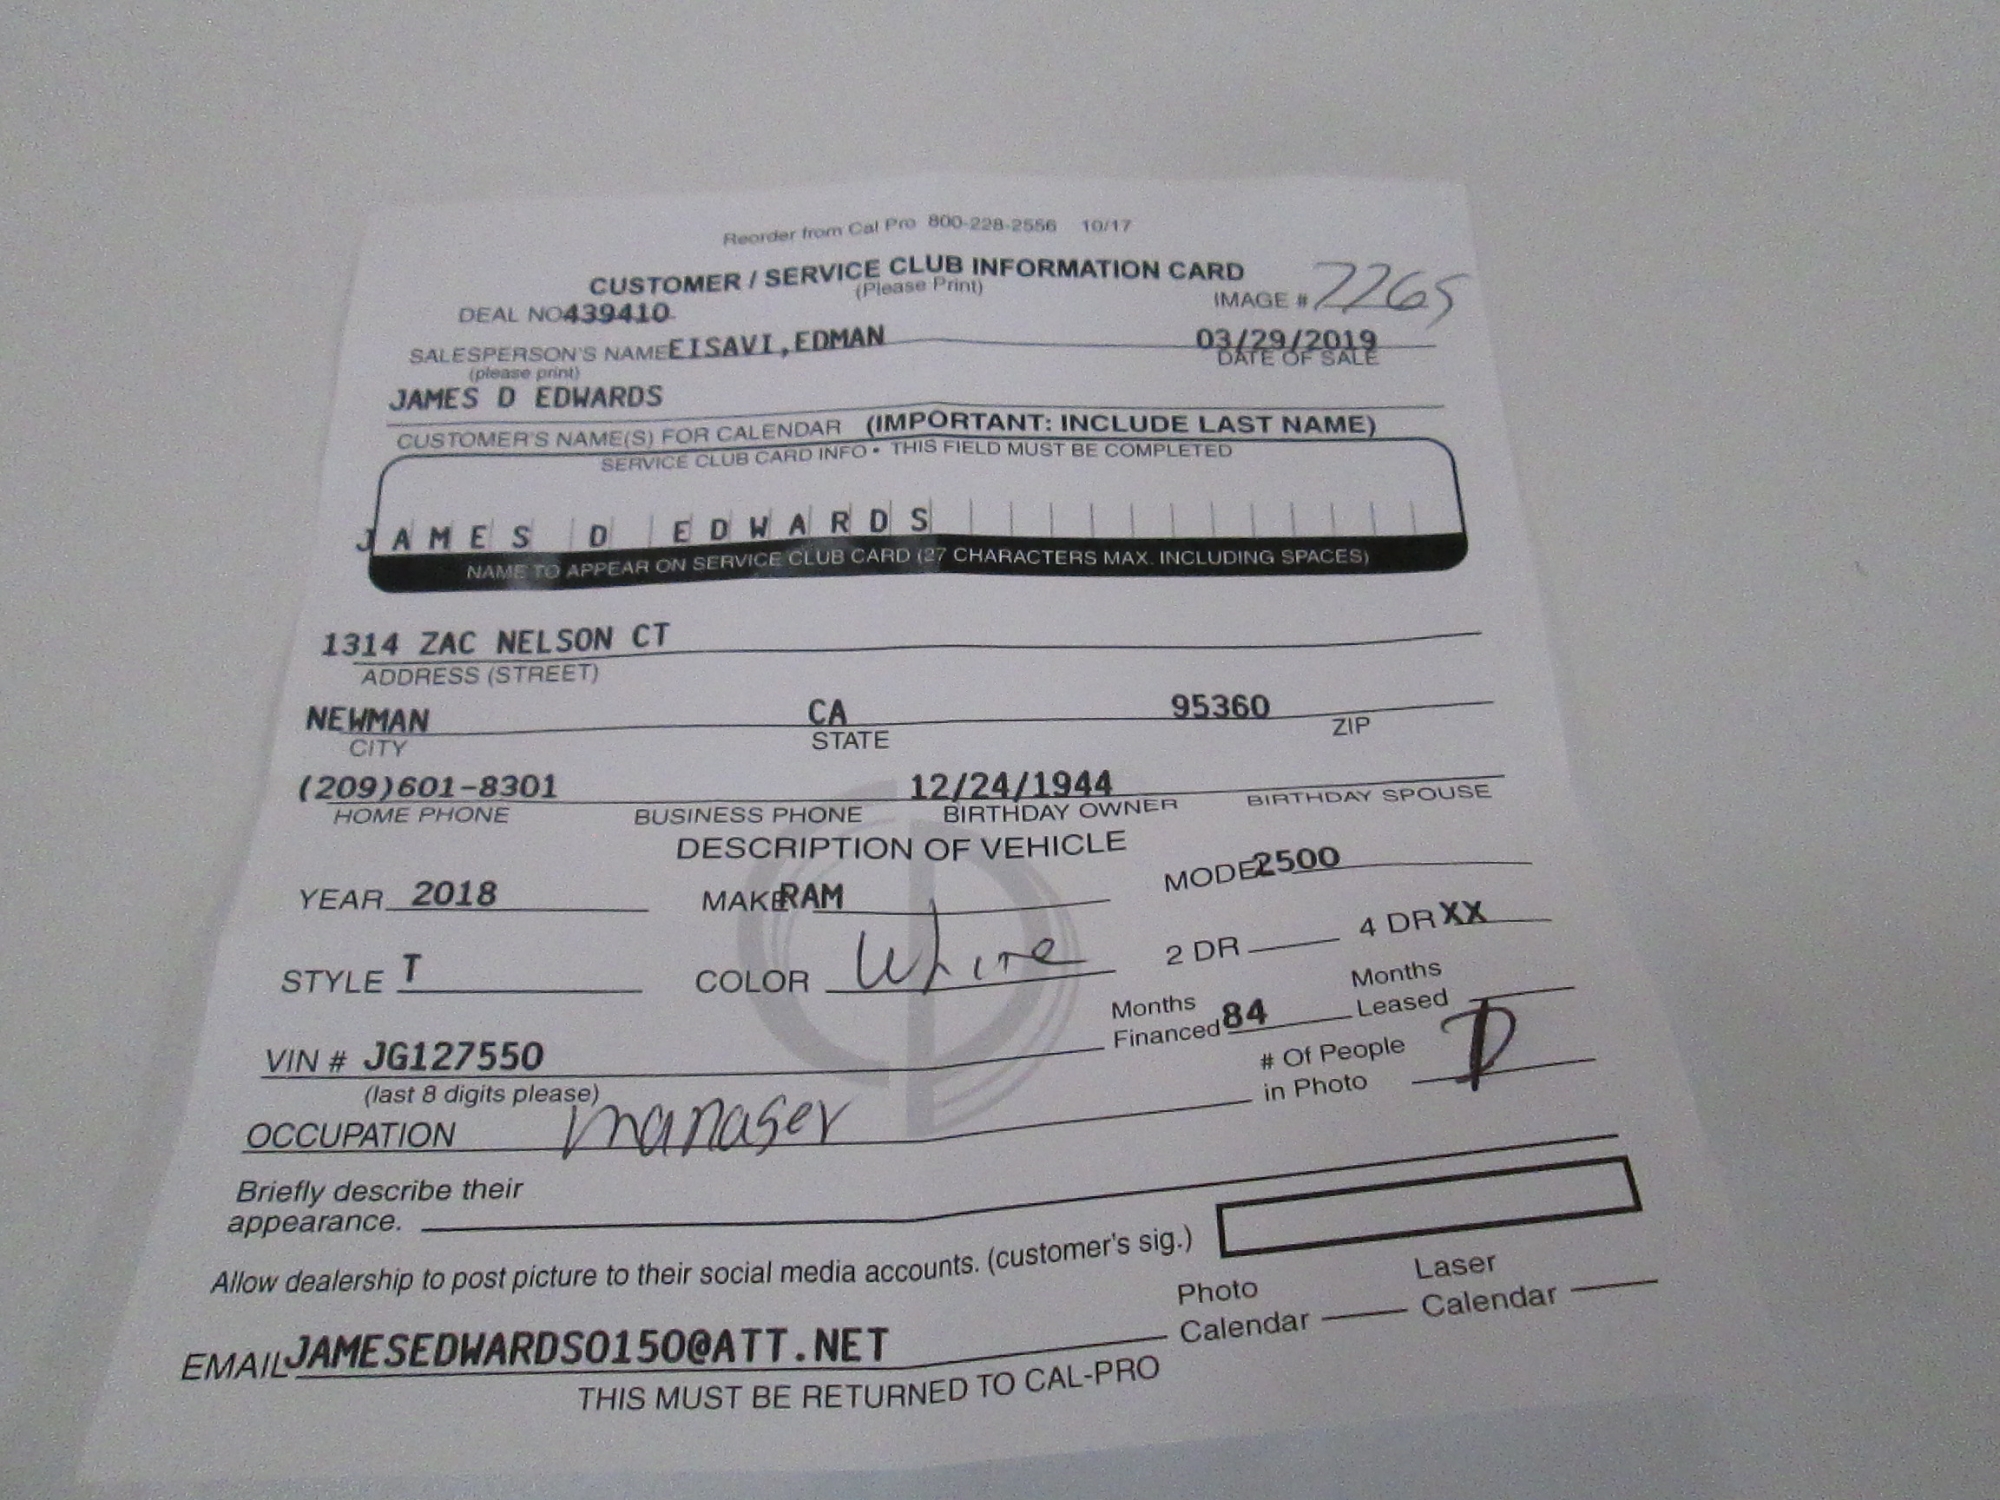 Reorder from Cal Pro 800-228-2556 10/17
CUSTOMER / SERVICE CLUB INFORMATION CARD
(Please Print)
DEAL NO439410 IMAGE #
SALESPERSON'S NAMEEISAVI,EDMAN 03/29/2019
(please print) DATE OF SALE
JAMES D EDWARDS
CUSTOMER'S NAME(S) FOR CALENDAR (IMPORTANT: INCLUDE LAST NAME)
SERVICE CLUB CARD INFO • THIS FIELD MUST BE COMPLETED
JAMES D EDWARDS
NAME TO APPEAR ON SERVICE CLUB CARD (27 CHARACTERS MAX. INCLUDING SPACES)
1314 ZAC NELSON CT
ADDRESS (STREET)
NEWMAN CA 95360
CITY STATE ZIP
(209)601-8301 12/24/1944
HOME PHONE BUSINESS PHONE BIRTHDAY OWNER BIRTHDAY SPOUSE
DESCRIPTION OF VEHICLE
YEAR 2018 MAKE RAM MODEL 2500
STYLE T COLOR White 2 DR 4 DR XX
Months Financed 84 Months Leased
VIN # JG127550 # Of People in Photo
(last 8 digits please)
OCCUPATION manager
Briefly describe their
appearance.
Allow dealership to post picture to their social media accounts. (customer's sig.)
Photo Calendar Laser Calendar
EMAIL JAMESEDWARDS0150@ATT.NET
THIS MUST BE RETURNED TO CAL-PRO